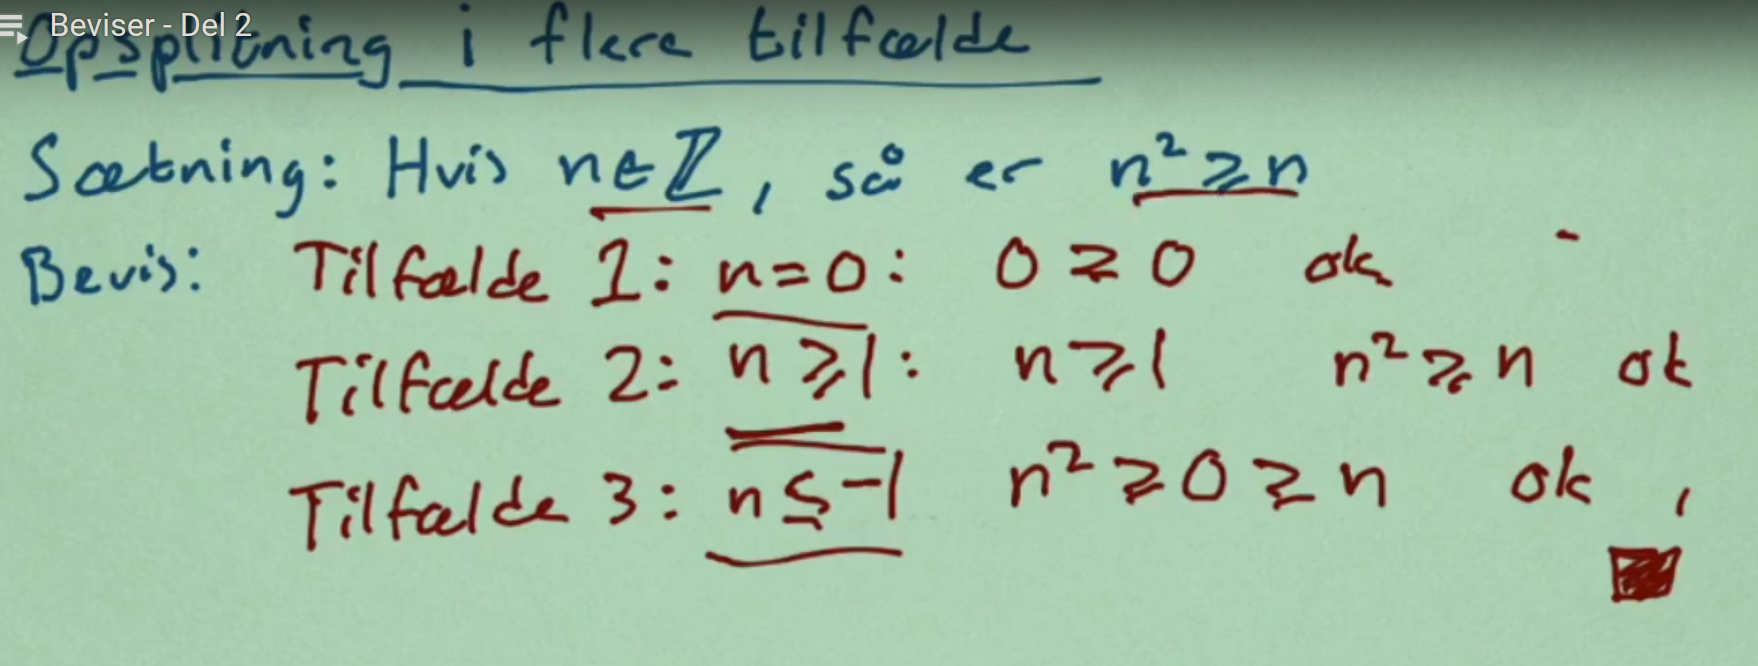 Beviser - Del 2
Opsplitning i flere tilfælde
Sætning: Hvis n∈ℤ, så er n² ≥ n
Bevis: Tilfælde 1: n=0: 0 ≥ 0 ok
Tilfælde 2: n ≥ 1: n ≥ 1 n² ≥ n ok
Tilfælde 3: n ≤ -1 n² ≥ 0 ≥ n ok,